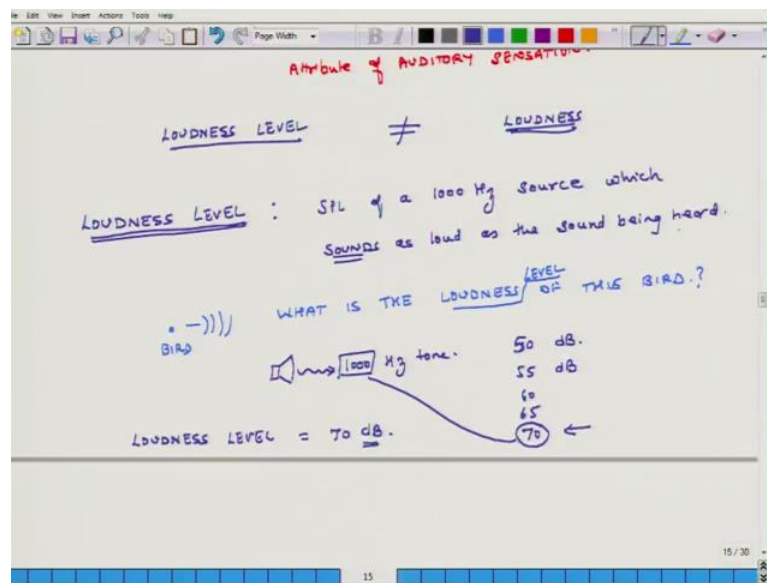 File Edit View Insert Actions Tools Help
Page Width
Attribute of AUDITORY SENSATION.
LOUDNESS LEVEL ≠ LOUDNESS
LOUDNESS LEVEL : SPL of a 1000 Hz source which
SOUNDS as loud as the sound being heard.
WHAT IS THE LOUDNESS LEVEL OF THIS BIRD.?
BIRD
1000 Hz tone.
50 dB.
55 dB
60
65
70 ←
LOUDNESS LEVEL = 70 dB.
15 / 30
15